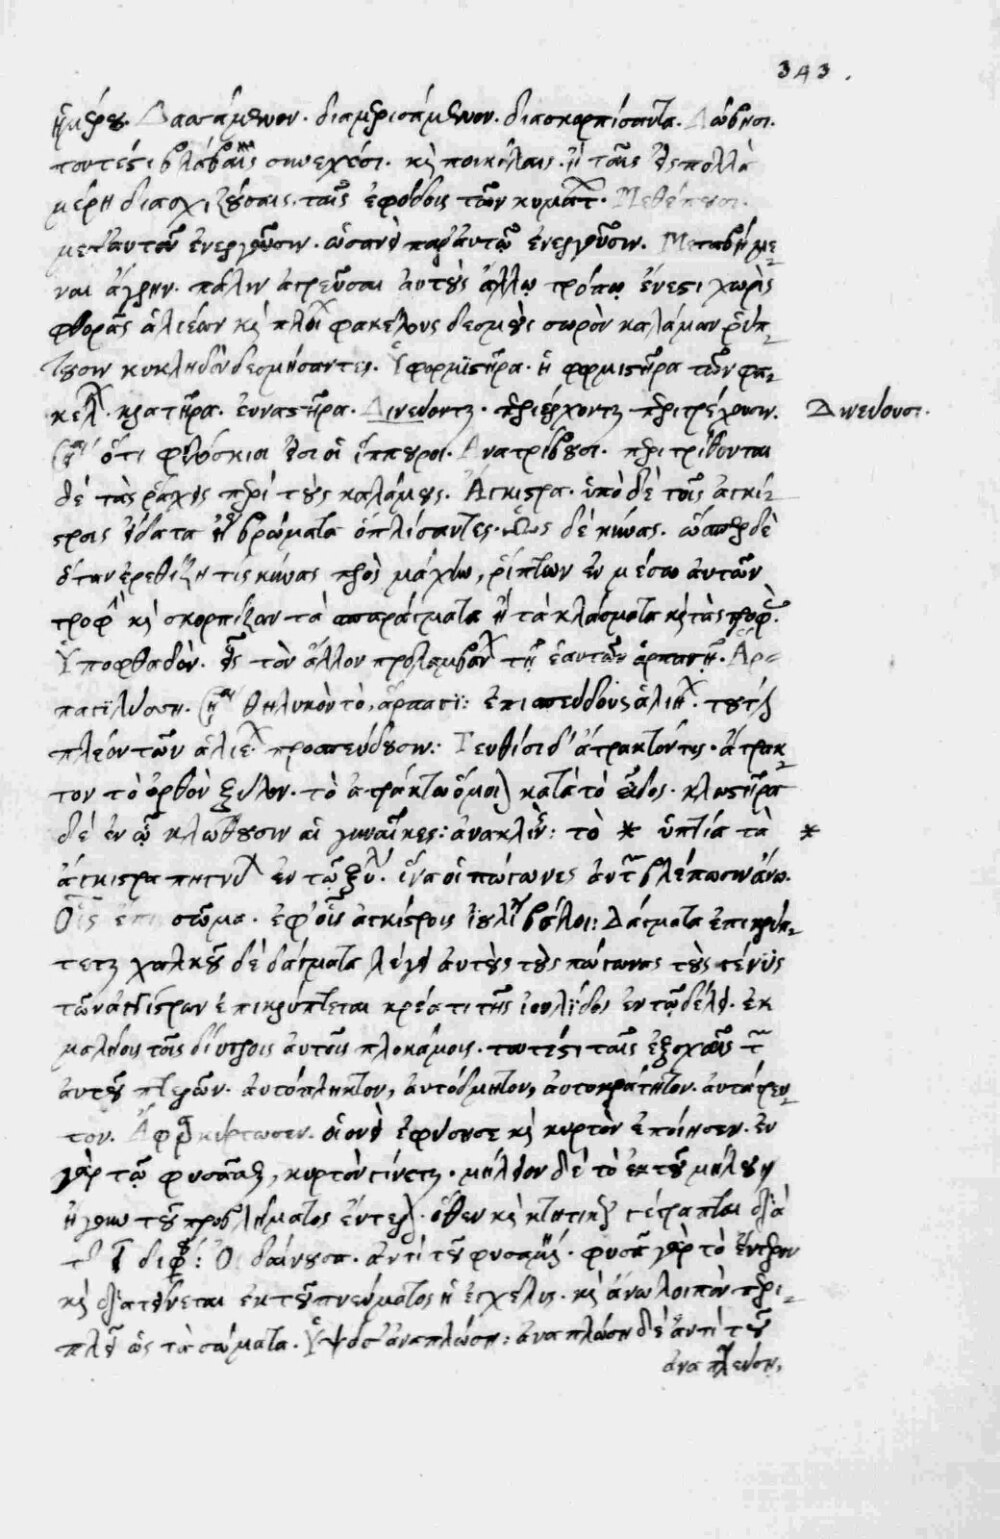 343.
ἡμέρου. Δασσάμενον. διαμερισάμενον. διασκορπίσαντα. Λώβησι.
τουτέστι βλάβαις συνεχέσι. καὶ ποικίλαις. ἢ ταῖς εἰς πολλὰ
μέρη διασχιζούσαις. ταῖς ἐφόδοις τῶν κυμάτ. Μεθέπουσι.
μετ' αυτοῦ ἐνεργοῦσιν. ὡσανεὶ παρ' αυτῷ ἐνεργοῦσιν. Μεταβήμε
ναι ἄγρην. πάλιν ἀγρεῦσαι αυτοὺς ἄλλῳ τρόπῳ ἔνεστι χωρὶς
φθορᾶς ἁλιέων καὶ πλοί φακέλους δεσμοὺς σωρὸν καλάμων ῥίπ
τουσιν κυκληδὸν δεσμήσαντες. Ὑφορμϊστῆρα. ἢ φορμιστῆρα τῶν φα
κέλ. κρατῆρα. ἐυναστῆρα. Δινεύονται. περιέρχονται περιτρέχουσιν. Δινεύουσι.
ὅτι φιλόσκιοι εἰσι οἱ ἵππουροι. Ανατρίβουσι. περιτρίβονται
δὲ τὰς ῥάχεις περὶ τοὺς καλάμους. Ἄγκιστρα. ὑπὸ δὲ τοῖς ἀγκί
στροις εἴδατα ἢ βρώματα ὁπλίσαντες. Ὡς δὲ κύνας. ὥσπερ δὲ
ὅταν ἐρεθίζῃ τις κύνας πρὸς μάχην, ῥίπτων ἐν μέσῳ αυτῶν
τροφ καὶ σκορπίζων τὰ σπαράγματα ἢ τὰ κλάσματα καὶ τὰς τροφ.
Ὑποφθαδὸν. εἷς τὸν ἄλλον προλαμβάν τῇ ἑαυτῶν ἁρπαγῇ. Ἁρ
παγϊ λύσση. θηλυκὸν τὸ, ἅρπαγϊ: ἐπισπεύδους ἁλιή. τουτέστι
πλέον τῶν ἁλιέ. προσπεύδουσιν: Τευθίσι δ' ἄτρακτόν τις. ἄτρακ
τον τὸ ὀρθὸν ξύλον. τὸ ἀτράκτῳ ὅμοι κατὰ τὸ εἶδος. κλωστῆρα
δὲ ἐν ᾧ κλώθουσιν αἱ γυναῖκες: ἀνακλίν: τὸ * ὑπτία τὰ *
ἄγκιστρα πηγνύ ἐν τῷ ξύ. ἵνα οἱ πώγωνες ἀντ βλέπωσιν ἄνω.
Οἷς ἐπι στῶμα. ἐφ' οἷς ἀγκίστροις ἰουλί βάλοι: Δάγματα ἐπικρύπ
τεται χαλκοῦ δὲ δάγματα λέγει αυτοὺς τοὺς πώγωνας τοὺς γένϋς
τῶν ἀγκίστρων ἐπικρύπτεται κρέατι τῆς ἰουλϊδος ἐν τῷ δέλ. ἐκ
μαλίους τοῖς διύγροις αυτοῖς πλοκάμοις. τουτέστι ταῖς ἐξοχαῖς τ
αυτοῦ πτερῶν. αυτόπληκτον, αυτόδμητον, αυτοκράτητον. αυτάγρευ
τον. Ἀφρ κύρτωσεν. οἱονεὶ ἐφύσησε καὶ κυρτὸν ἐποίησεν. ἐν
γὰρ τῷ φυσᾶσθαι, κυρτὸν γίνεται. μήλειον δὲ τὸ ἐκ τοῦ μήλου
ἤγουν τοῦ προβλήματος ἔντερ. ὅθεν καὶ κτητικ γέγραπται διὰ
τ διφ: Οἰδαίνουσα. ἀντὶ τοῦ φυσαμέ. φυσᾷ γὰρ τὸ ἔντερον
καὶ διατείνεται ἐκ τοῦ πνεύματος ἡ ἔγχελυς. καὶ ἄνω λοιπὸν περι
πλεῖ ὡς τὰ σώματα. Ὑψόσ' ἀναπλώσῃ: ἀναπλώσῃ δὲ ἀντὶ τοῦ
ἀναπλεύσῃ,